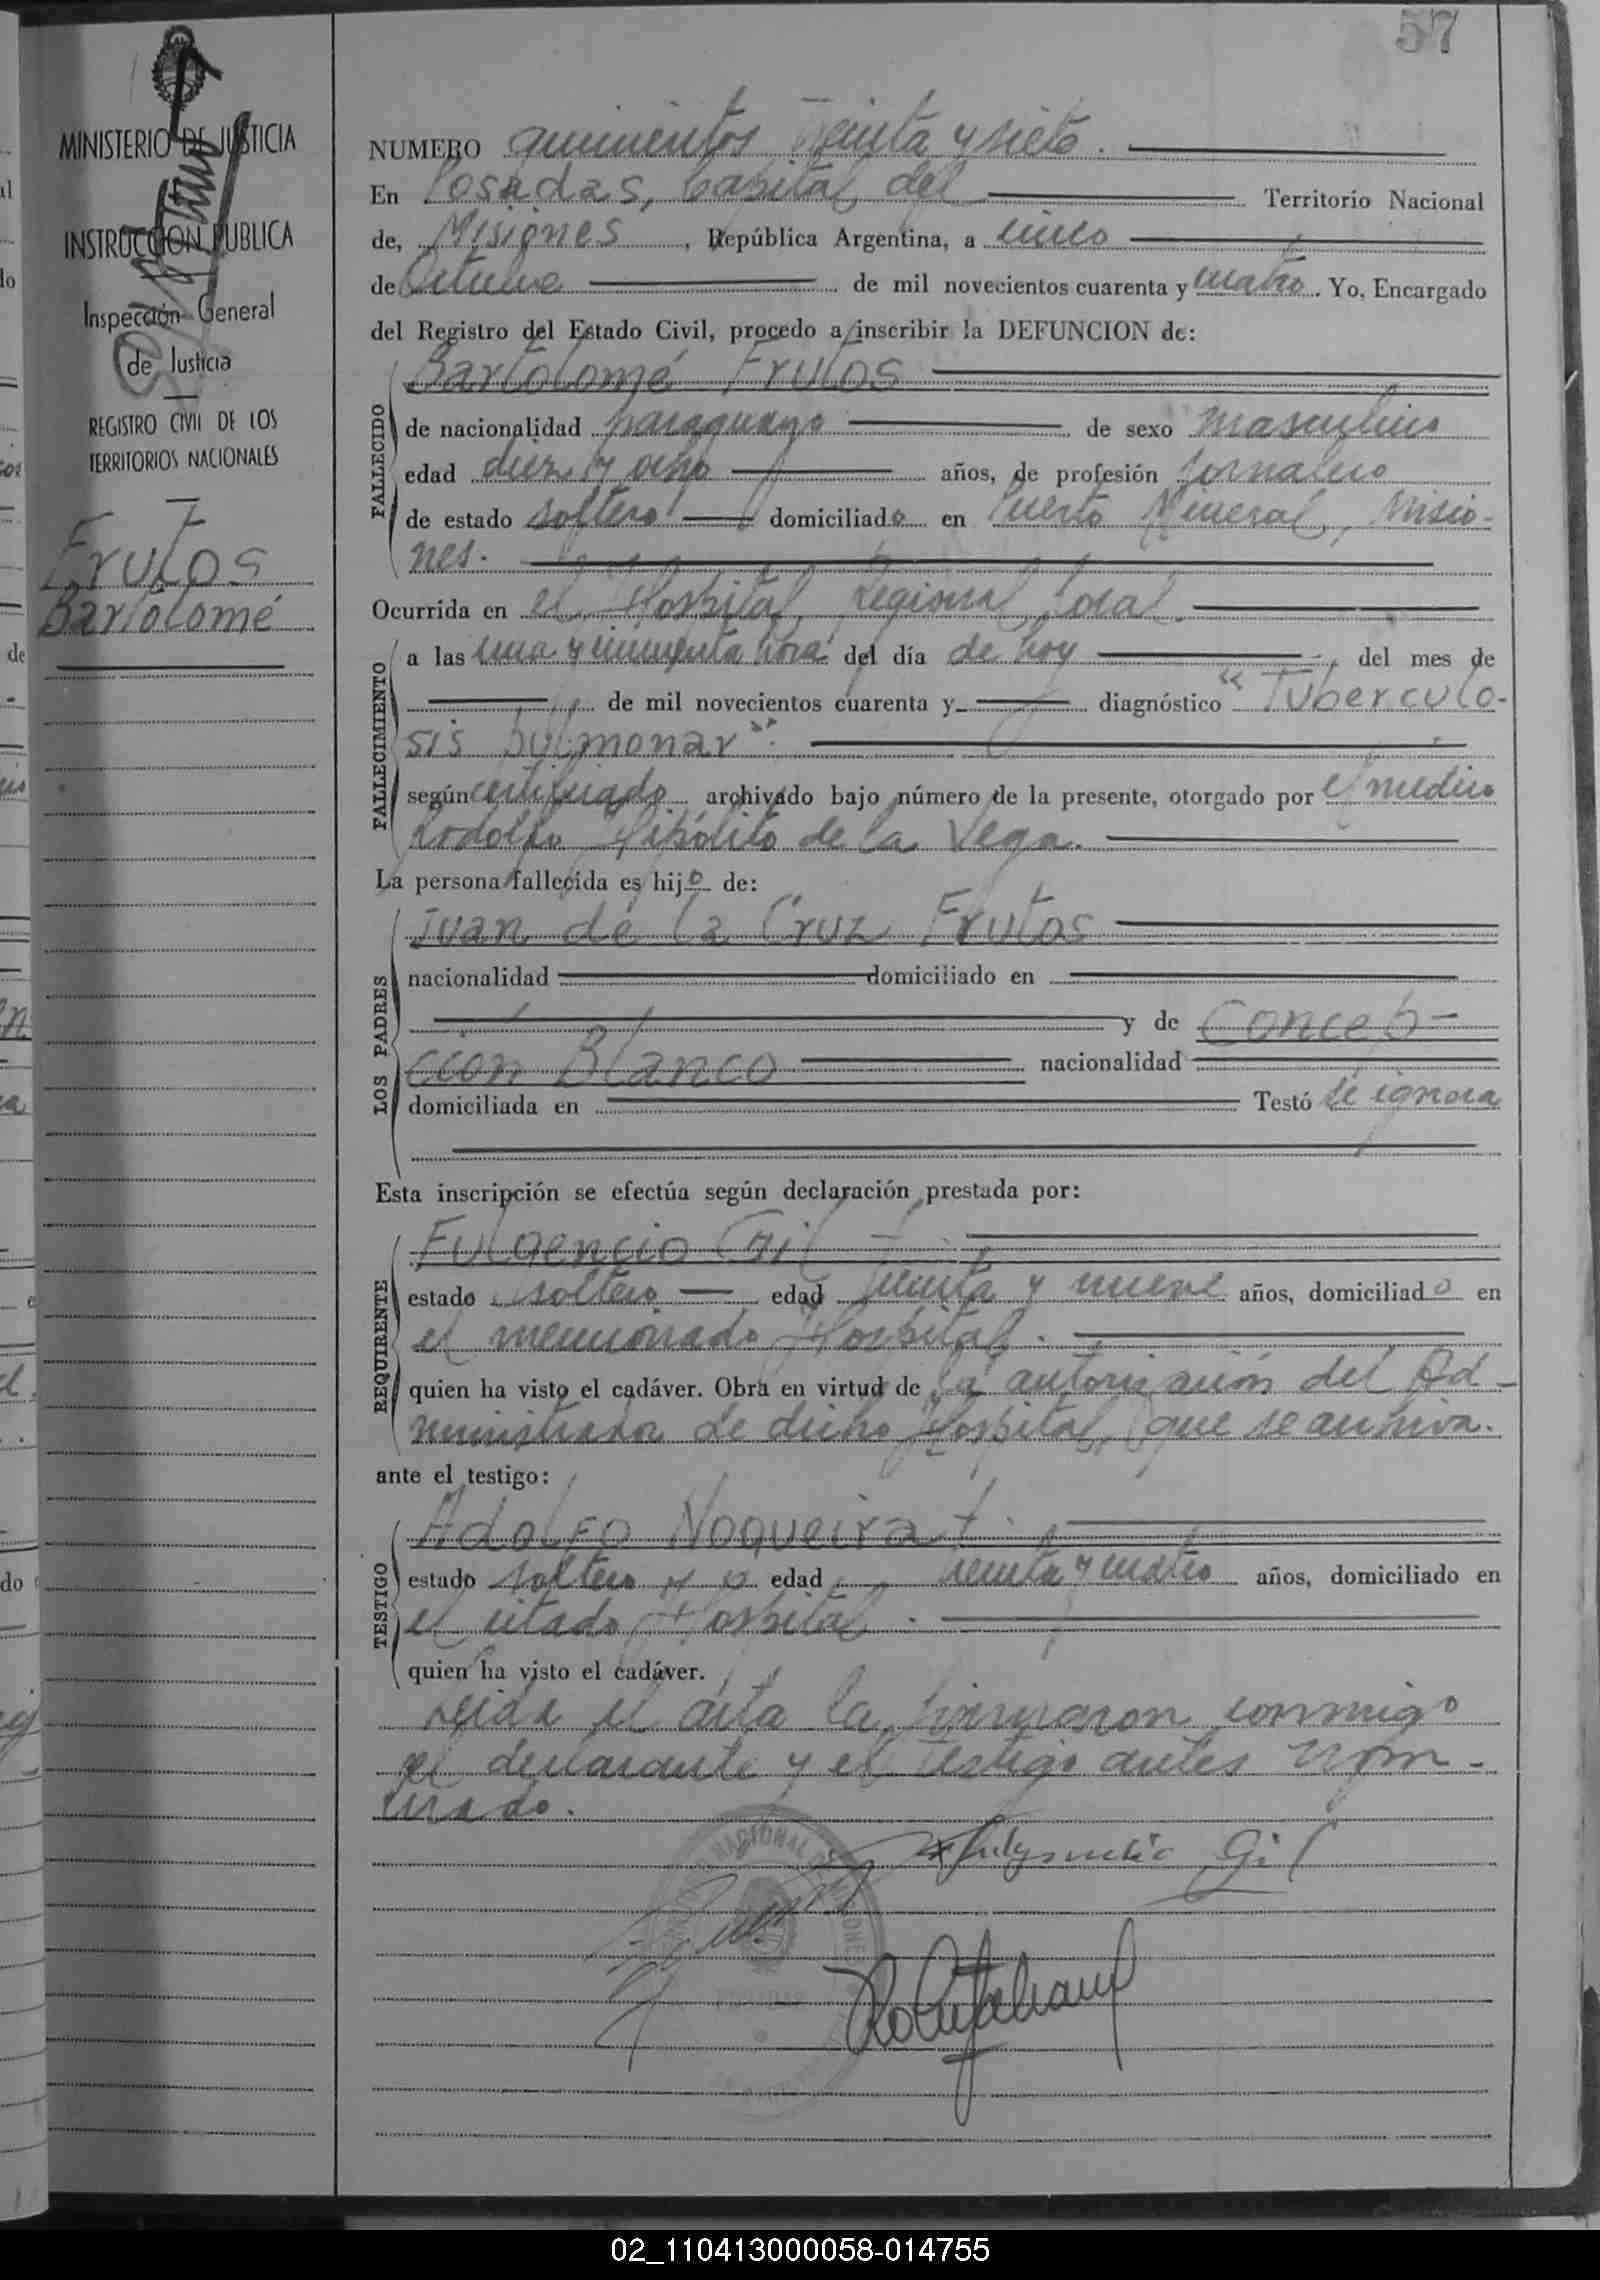 57
MINISTERIO DE JUSTICIA
INSTRUCCION PUBLICA
Inspección General
de Justicia
REGISTRO CIVIL DE LOS
TERRITORIOS NACIONALES
Frutos
Bartolomé
NUMERO quinientos treinta y siete.
En Posadas, Capital del Territorio Nacional
de, Misiones, República Argentina, a cinco
de Octubre de mil novecientos cuarenta y cuatro. Yo, Encargado
del Registro del Estado Civil, procedo a inscribir la DEFUNCION de:
Bartolomé Frutos
FALLECIDO
de nacionalidad paraguayo de sexo masculino
edad diez y ocho años, de profesión jornalero
de estado soltero domiciliado en Puerto Mineral, Misio-
nes.
Ocurrida en el Hospital Regional local
FALLECIMIENTO
a las una y cincuenta hora del día de hoy del mes de
de mil novecientos cuarenta y diagnóstico "Tuberculo-
sis pulmonar".
según certificado archivado bajo número de la presente, otorgado por el médico
Rodolfo Hipólito de la Vega.
La persona fallecida es hijo de:
LOS PADRES
Juan de la Cruz Frutos
nacionalidad domiciliado en
y de Concep-
ción Blanco nacionalidad
domiciliada en Testó se ignora
Esta inscripción se efectúa según declaración prestada por:
REQUIRENTE
Fulgencio Gil
estado soltero edad treinta y nueve años, domiciliado en
el mencionado Hospital.
quien ha visto el cadáver. Obra en virtud de la autorización del Ad-
ministrador de dicho Hospital, que se archiva.
ante el testigo:
TESTIGO
Adolfo Nogueira
estado soltero edad treinta y cuatro años, domiciliado en
el citado Hospital.
quien ha visto el cadáver.
Leída el acta la firmaron conmigo
el declarante y el testigo antes nom-
brado.
Gil
02_110413000058-014755